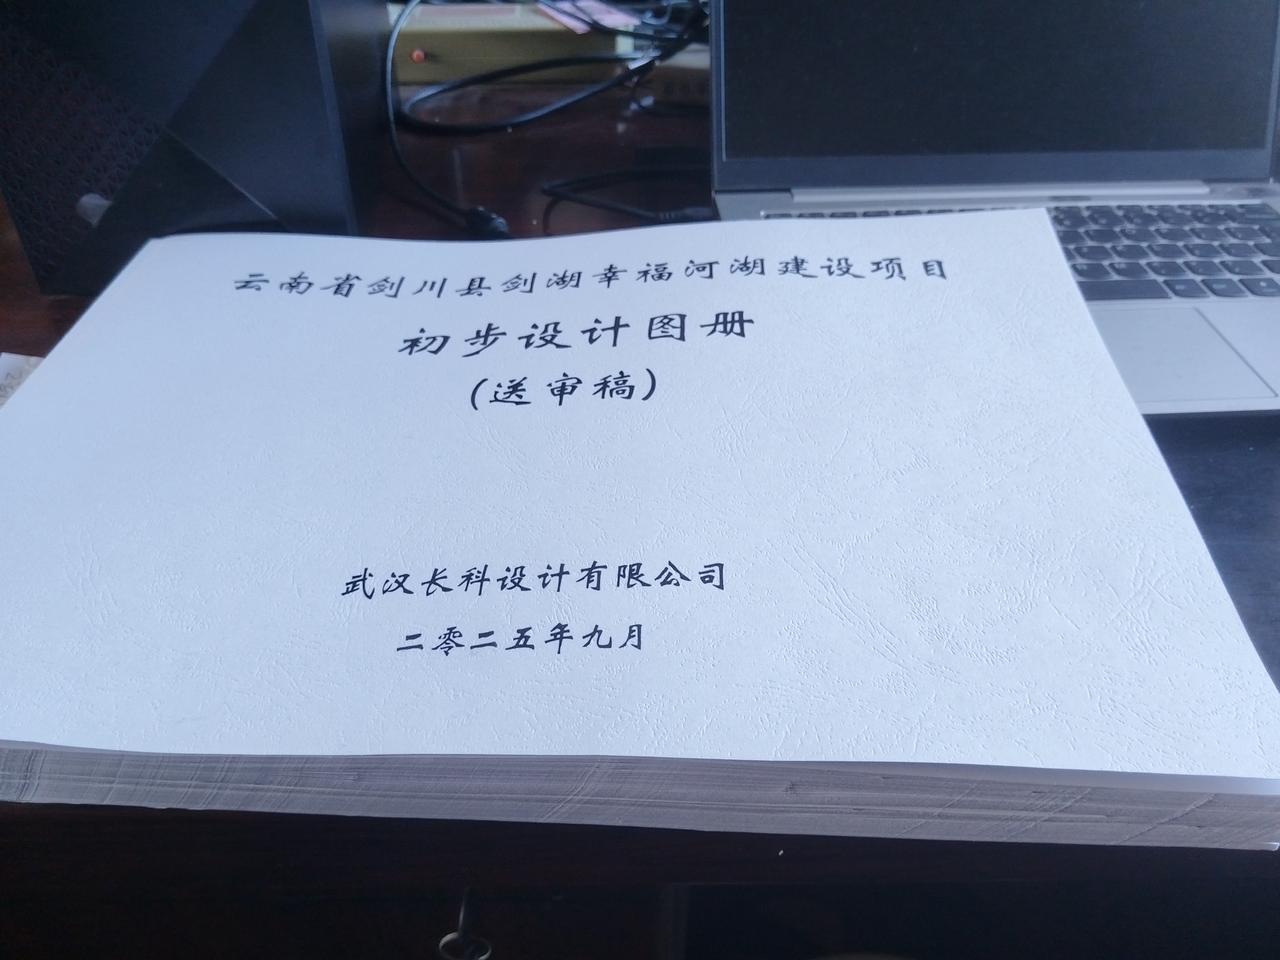 云南省剑川县剑湖幸福河湖建设项目
初步设计图册
(送审稿)
武汉长科设计有限公司
二零二五年九月